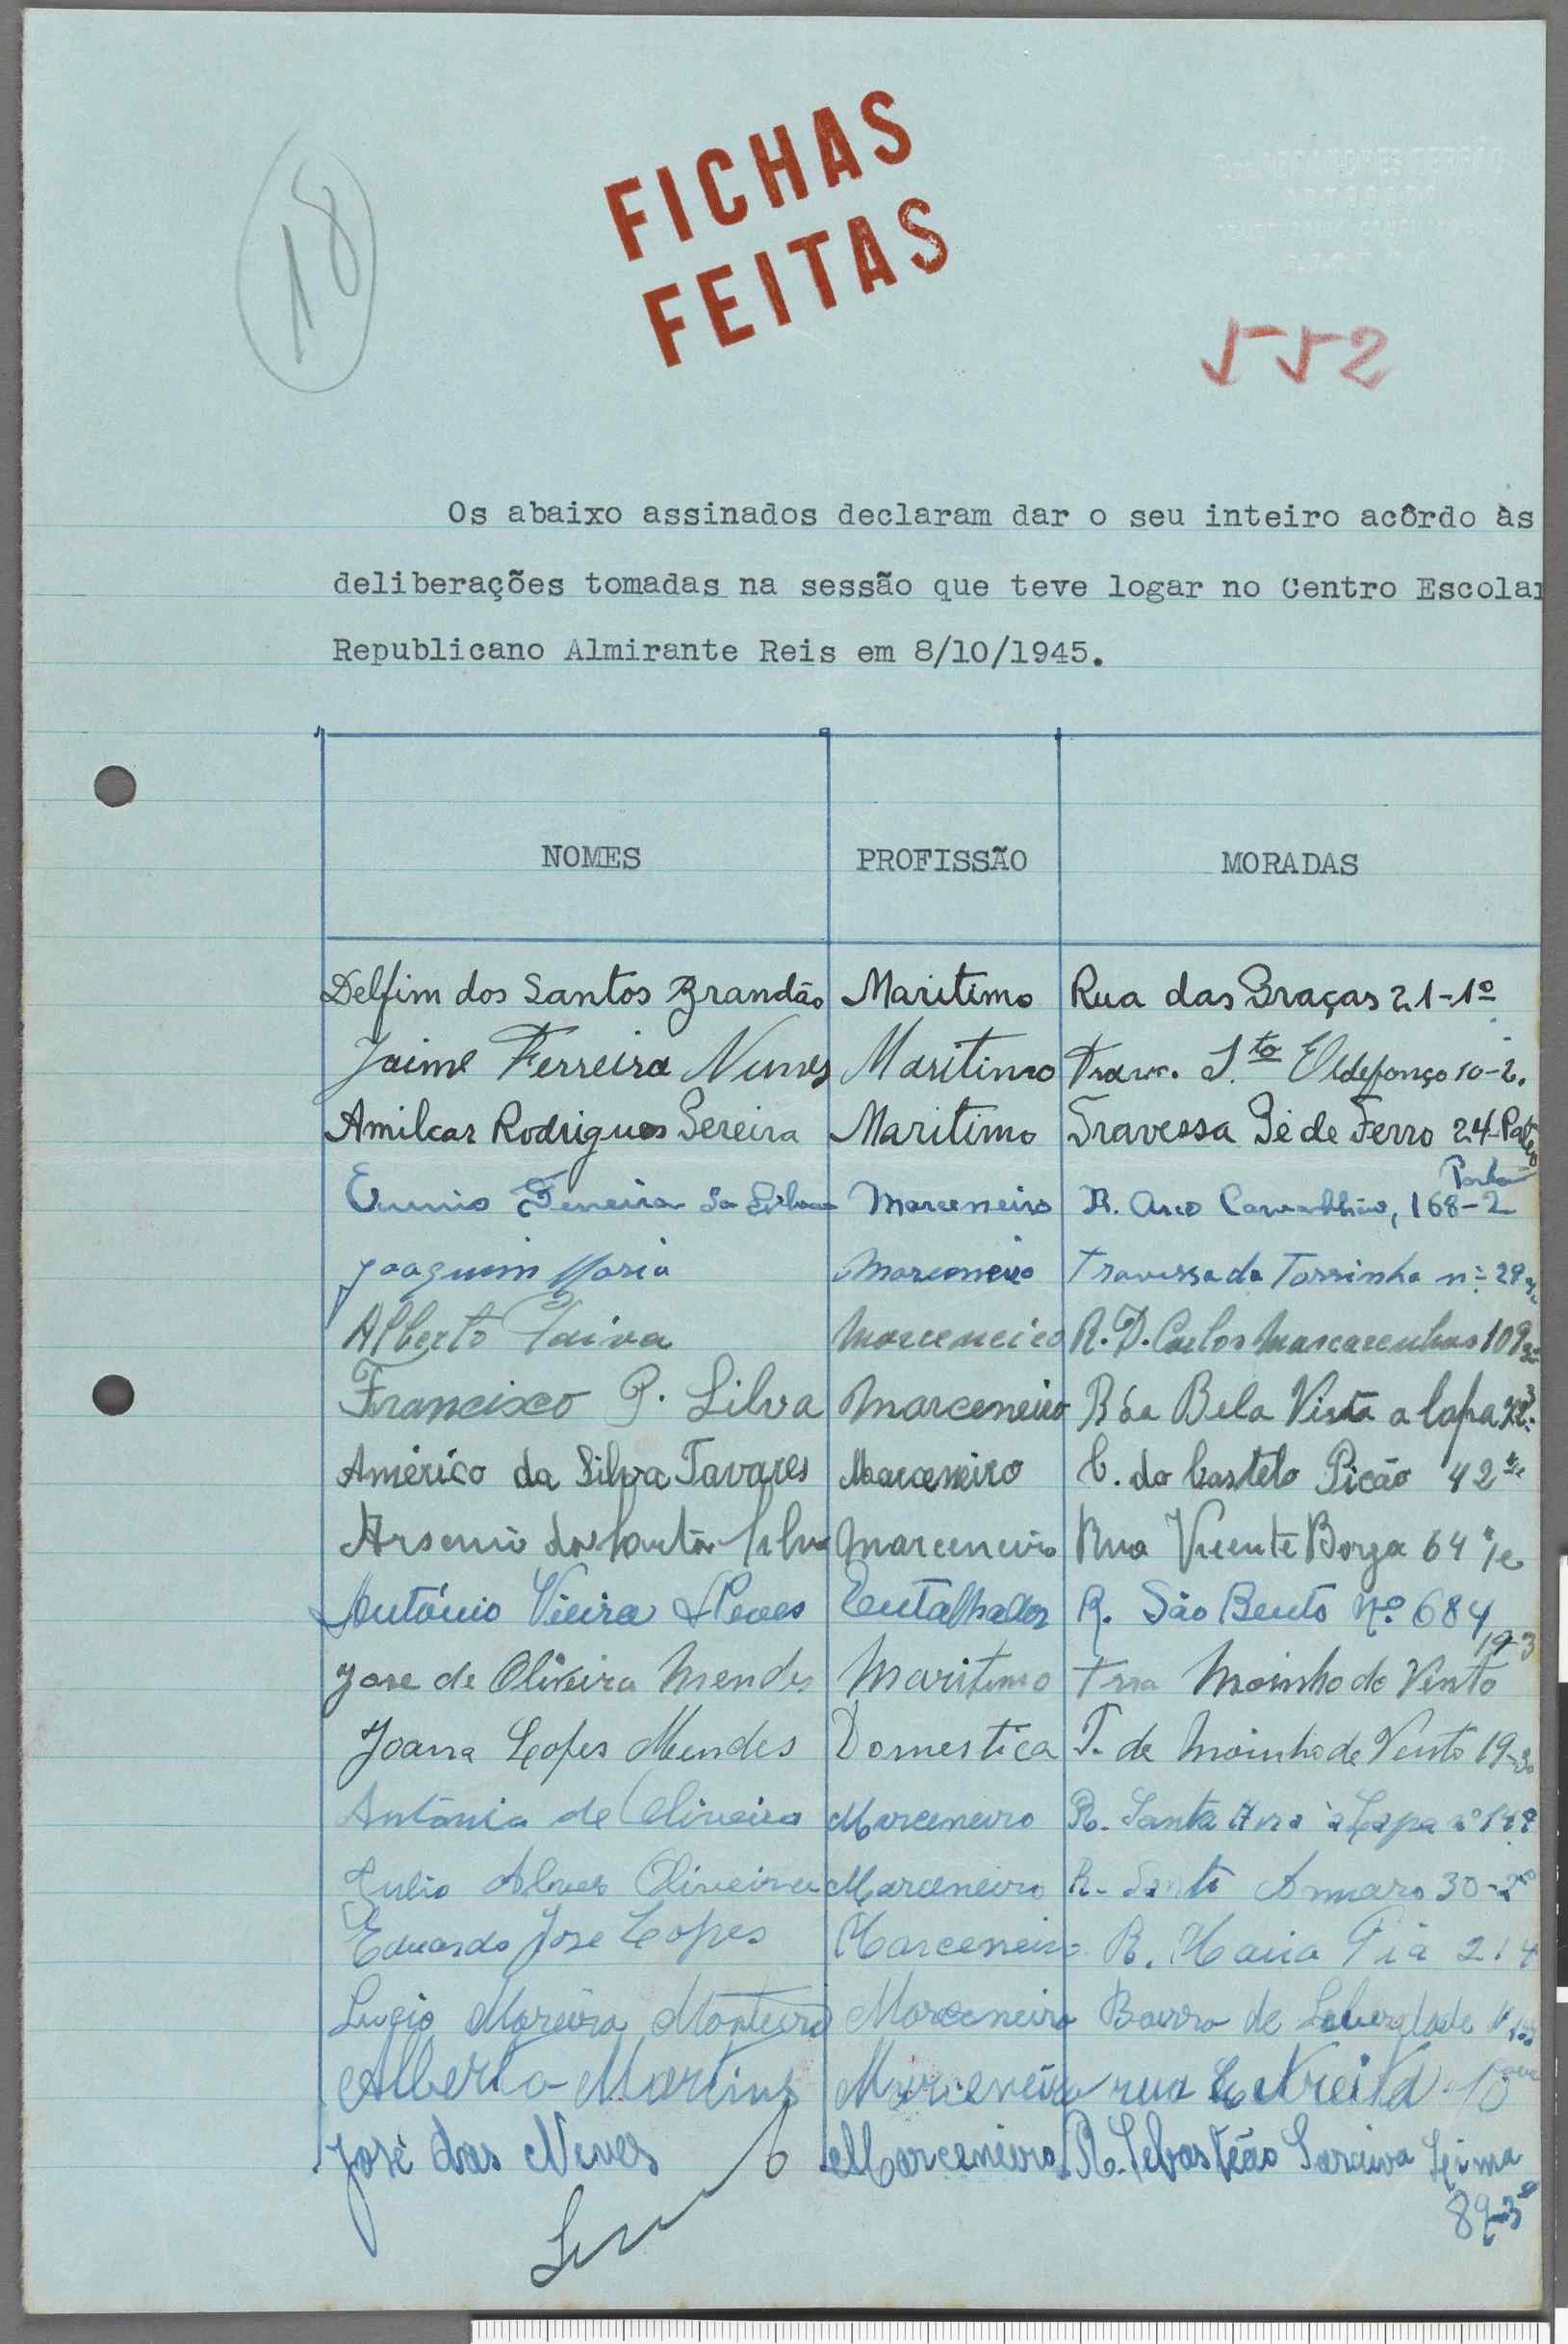 18
FICHAS
FEITAS
552
Os abaixo assinados declaram dar o seu inteiro acôrdo às
deliberações tomadas na sessão que teve logar no Centro Escolar
Republicano Almirante Reis em 8/10/1945.
NOMES PROFISSÃO MORADAS
Delfim dos Santos Brandão Maritimo Rua das Graças 21-1º
Jaime Ferreira Nunes Maritimo Trav. S.to Eldefonço 10-2.
Amilcar Rodrigues Pereira Maritimo Travessa Pé de Ferro 24-Pateo
Porta
Ferreira da Silva Marceneiro R. Arco Carvalhão, 168-2
Joaquim Maria Marceneiro Travessa da Torrinha nº 29
Alberto Paiva Marceneiro R. D. Carlos Mascarenhas 109
Francisco P. Silva Marceneiro R da Bela Vista a lapa
Américo da Silva Tavares Marceneiro C. do Castelo Picão 42
Arsenio da Silva Marceneiro Rua Vicente Borga 64 r/c
António Vieira Neves Entalhador R. São Bento Nº 684
19-3
Jose de Oliveira Mendes Maritimo Trva Moinho de Vento
Joana Lopes Mendes Domestica T. de Moinho de Vento 19-3º
António de Oliveira Marceneiro R. Santa Ana à Lapa nº
Julio Alves Oliveira Marceneiro R. Santo Amaro 30-2º
Eduardo Jose Lopes Marceneiro R. Maria Pia 214
Lucio Moreira Monteiro Marceneiro Bairro de Leberdade
Alberto Martins Marceneiro rua Estreita
José das Neves Marceneiro R. Sebastião Saraiva Leima
89-3º